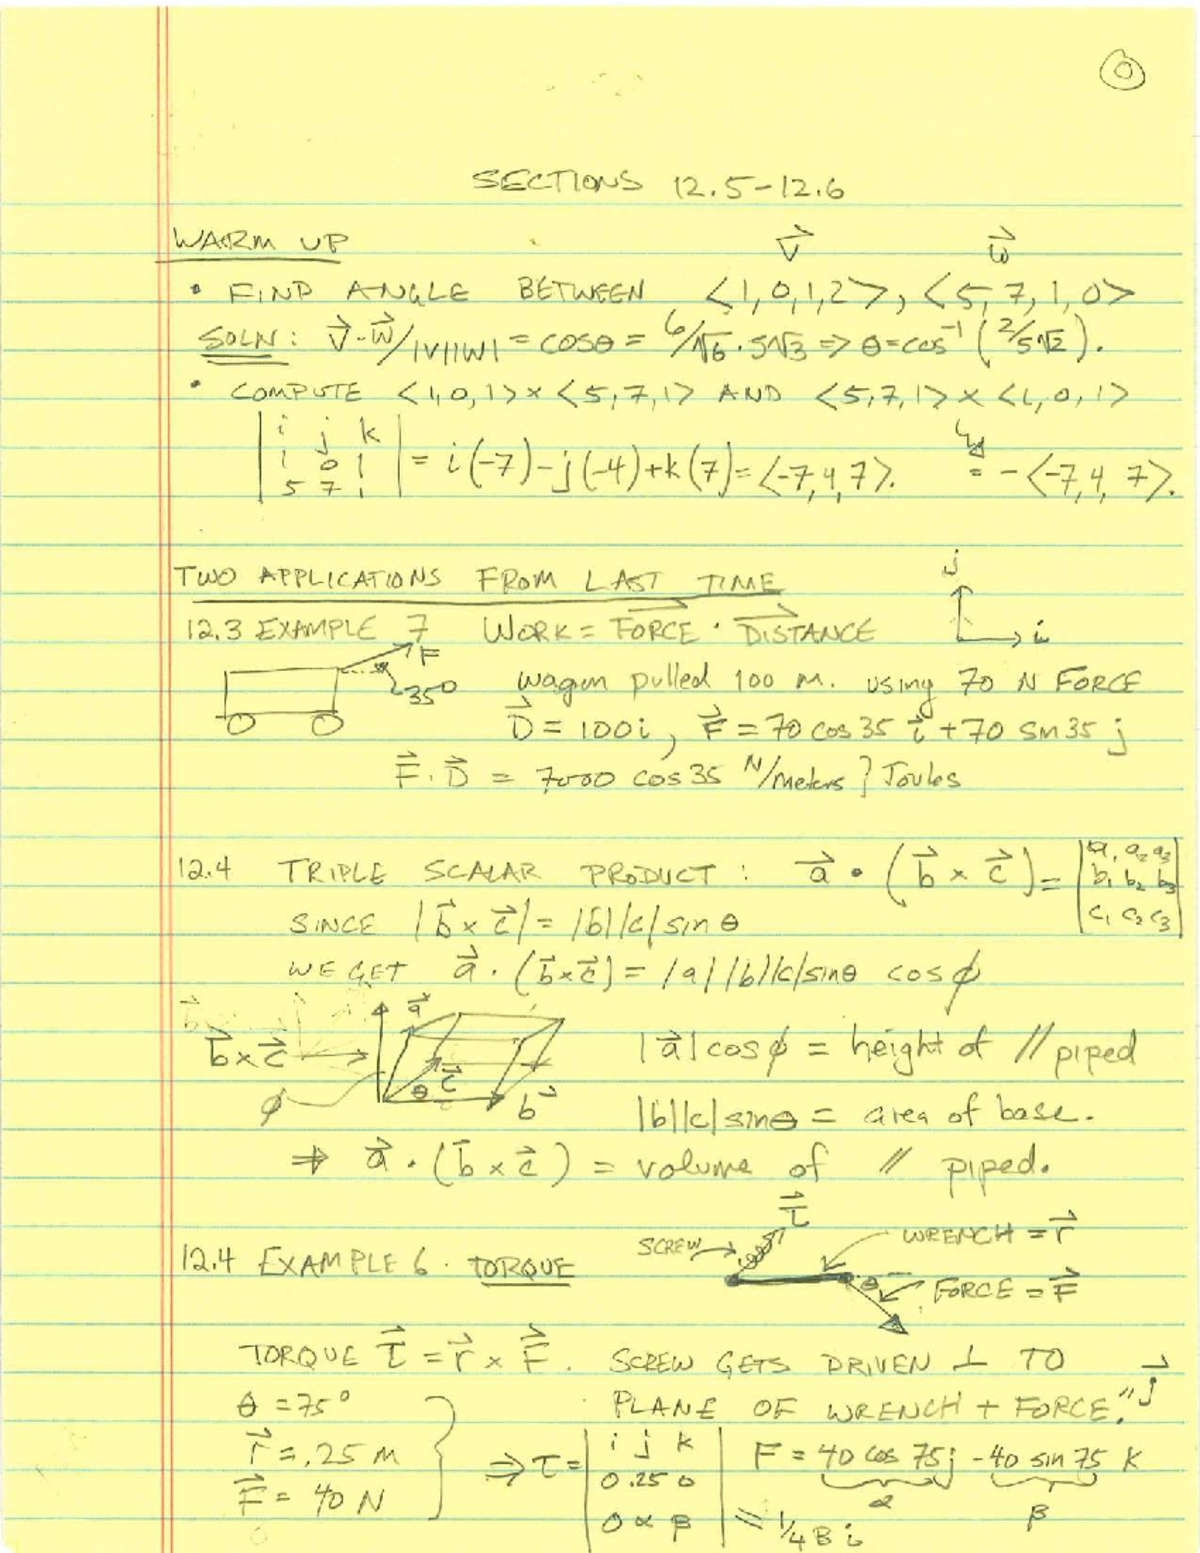 0
SECTIONS 12.5-12.6
WARM UP
v⃗ w⃗
• FIND ANGLE BETWEEN <1,0,1,2>, <5,7,1,0>
SOLN: v⃗·w⃗/|V||W| = COSθ = 6/√6·5√3 => θ=cos⁻¹(2/5√2).
• COMPUTE <1,0,1>×<5,7,1> AND <5,7,1>×<1,0,1>
| i j k |
| 1 0 1 | = i(-7)-j(-4)+k(7)=<-7,4,7>. = -<-7,4,7>.
| 5 7 1 |
TWO APPLICATIONS FROM LAST TIME
j
i
12.3 EXAMPLE 7 WORK = FORCE · DISTANCE
F
35°
wagon pulled 100 m. using 70 N FORCE
D⃗ = 100i, F⃗ = 70 cos 35 i⃗ + 70 sin 35 j
F⃗·D⃗ = 7000 cos 35 N/meters } Joules
12.4 TRIPLE SCALAR PRODUCT: a⃗ • (b⃗ × c⃗) = | a₁ a₂ a₃ |
| b₁ b₂ b₃ |
| c₁ c₂ c₃ |
SINCE |b⃗ × c⃗| = |b||c| sin θ
WE GET a⃗·(b⃗×c⃗) = |a||b||c| sinθ cos ϕ
a⃗
b⃗×c⃗
c⃗
θ
b⃗
ϕ
|a⃗| cos ϕ = height of // piped
|b||c| sinθ = area of base.
⇒ a⃗·(b⃗×c⃗) = volume of // piped.
τ⃗
SCREW WRENCH = r⃗
12.4 EXAMPLE 6. TORQUE
θ FORCE = F⃗
TORQUE τ⃗ = r⃗ × F⃗. SCREW GETS DRIVEN ⊥ TO
PLANE OF WRENCH + FORCE." j⃗
θ = 75°
r⃗ = .25 M
F⃗ = 40 N
⇒ τ = | i j k |
| 0 .25 0 |
| 0 α β | = 1/4 β i
F = 40 cos 75 j - 40 sin 75 k
α β